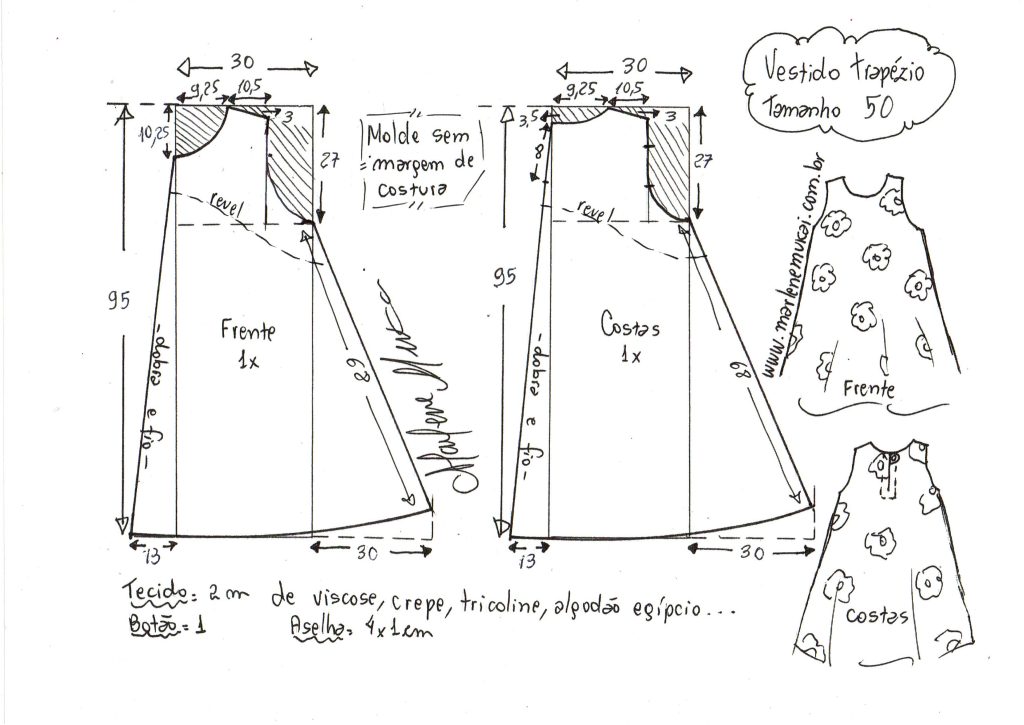 Vestido trapézio
Tamanho 50
30
9,25
10,5
3
10,25
27
Molde sem
margem de
costura
revel
95
Frente
1x
68
-dobra e fio-
13
30
30
9,25
10,5
3
3,5
8
27
revel
95
Costas
1x
68
-dobra e fio-
13
30
Marlene Mukai
www.marlenemukai.com.br
Frente
costas
Tecido: 2m de viscose, crepe, tricoline, algodão egípcio...
Botão = 1
Aselha = 4x1cm